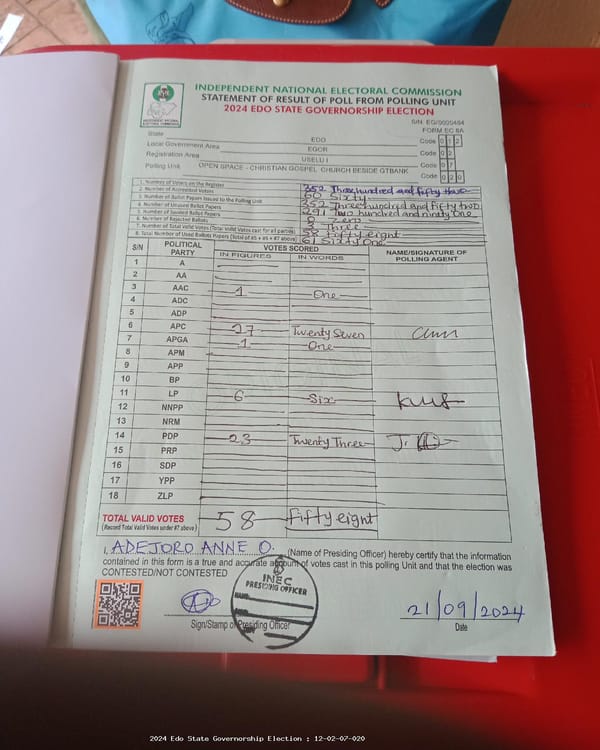 INDEPENDENT NATIONAL ELECTORAL COMMISSION
STATEMENT OF RESULT OF POLL FROM POLLING UNIT
2024 EDO STATE GOVERNORSHIP ELECTION
FORM EC 8A
State EDO Code 12
Local Government Area EGOR Code 02
Registration Area USELU I Code 07
Polling Unit OPEN SPACE - CHRISTIAN GOSPEL CHURCH BESIDE GTBANK Code 020
1. Number of Voters on the Register 352 Three hundred and fifty two
2. Number of Accredited Voters 60 Sixty
3. Number of Ballot Papers Issued to the Polling Unit 352 Three hundred and fifty two
4. Number of Unused Ballot Papers 291 Two hundred and ninety One
5. Number of Spoiled Ballot Papers 0 Zero
6. Number of Rejected Ballots 3 Three
7. Number of Total Valid Votes (Total Valid Votes cast for all parties) 58 Fifty eight
8. Total Number of Used Ballot Papers (Total of #5 + #6 + #7 above) 61 Sixty One
S/N POLITICAL PARTY VOTES SCORED NAME/SIGNATURE OF POLLING AGENT
IN FIGURES IN WORDS
1 A
2 AA
3 AAC 1 One
4 ADC
5 ADP
6 APC 27 Twenty Seven
7 APGA 1 One
8 APM
9 APP
10 BP
11 LP 6 Six
12 NNPP
13 NRM
14 PDP 23 Twenty Three
15 PRP
16 SDP
17 YPP
18 ZLP
TOTAL VALID VOTES 58 Fifty eight
(Record Total Valid Votes under #7 above)
I, ADEJORO ANNE O. (Name of Presiding Officer) hereby certify that the information
contained in this form is a true and accurate account of votes cast in this polling Unit and that the election was
CONTESTED/NOT CONTESTED
INEC
PRESIDING OFFICER
Sign/Stamp of Presiding Officer
21/09/2024
Date
2024 Edo State Governorship Election : 12-02-07-020